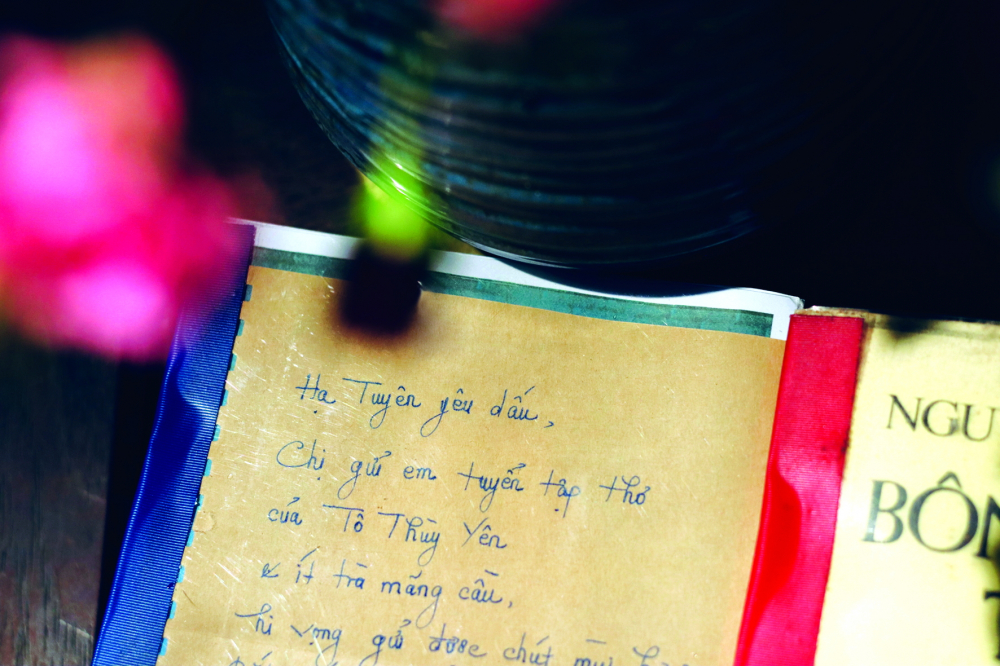 Hạ Tuyên yêu dấu,
Chị gửi em tuyển tập thơ
của Tô Thùy Yên
& ít trà mãng cầu,
hi vọng gửi được chút
NGU
BÔN